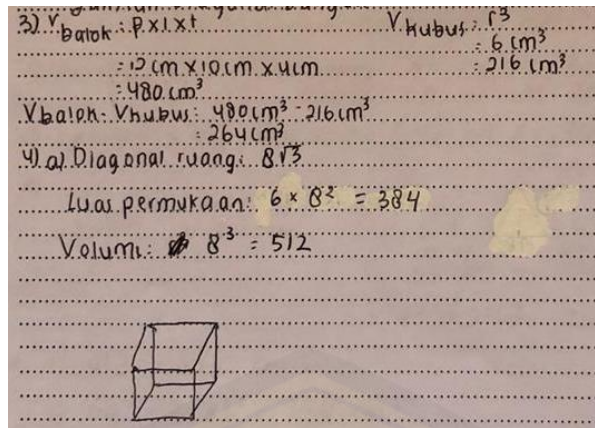 3) V balok : p x l x t
V kubus : r³
: 12 cm x 10 cm x 4 cm
: 6 cm³
: 480 cm³
: 216 cm³
V balok - V kubus : 480 cm³ - 216 cm³
: 264 cm³
4) a) Diagonal ruang : 8√3
Luas permukaan : 6 x 8² = 384
Volume : 8³ = 512